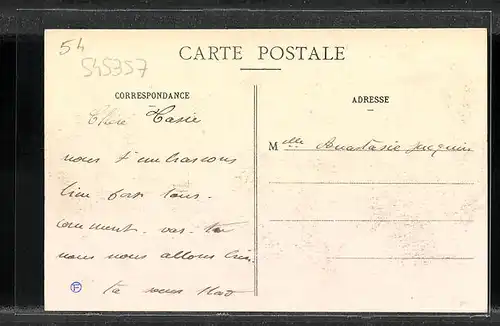 54
545357
CARTE POSTALE
CORRESPONDANCE
Chère Tasie
nous t'embrassons
bien fort tous.
comment vas-tu
nous nous allons bien.
ta soeur
ADRESSE
Melle Anastasie
F